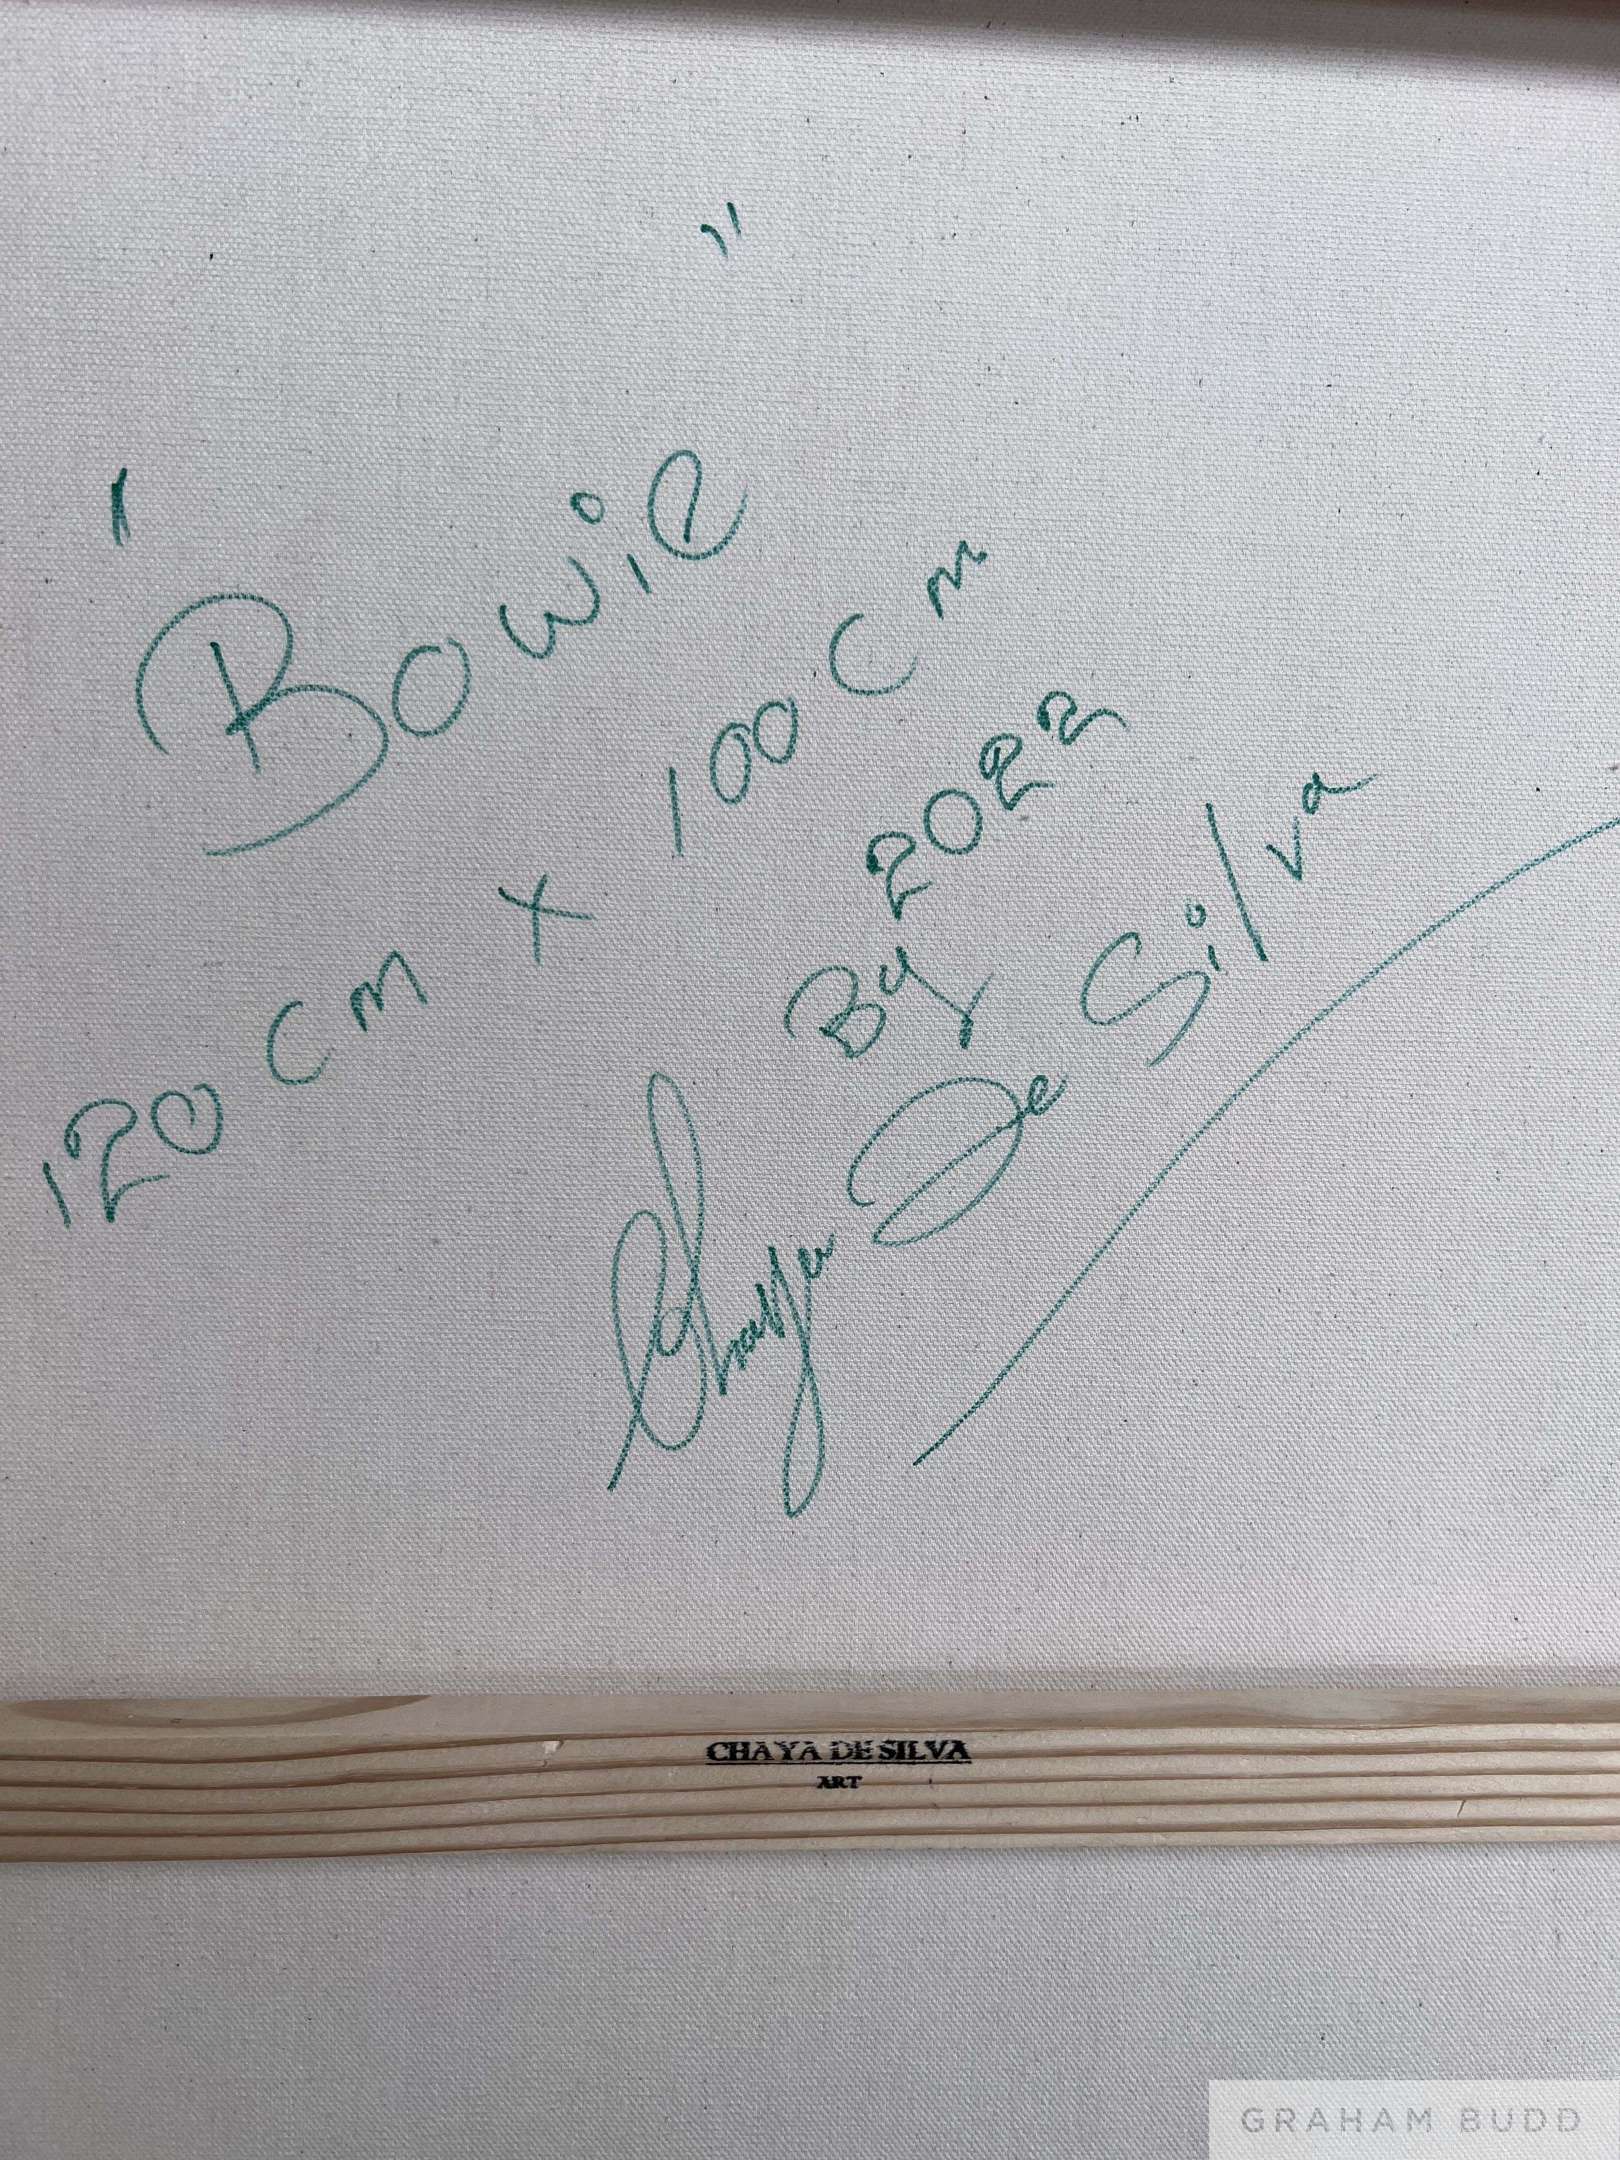 "Bowie"
120 cm x 100 cm
2022
By
Chaya De Silva
CHAYA DE SILVA
ART
GRAHAM BUDD